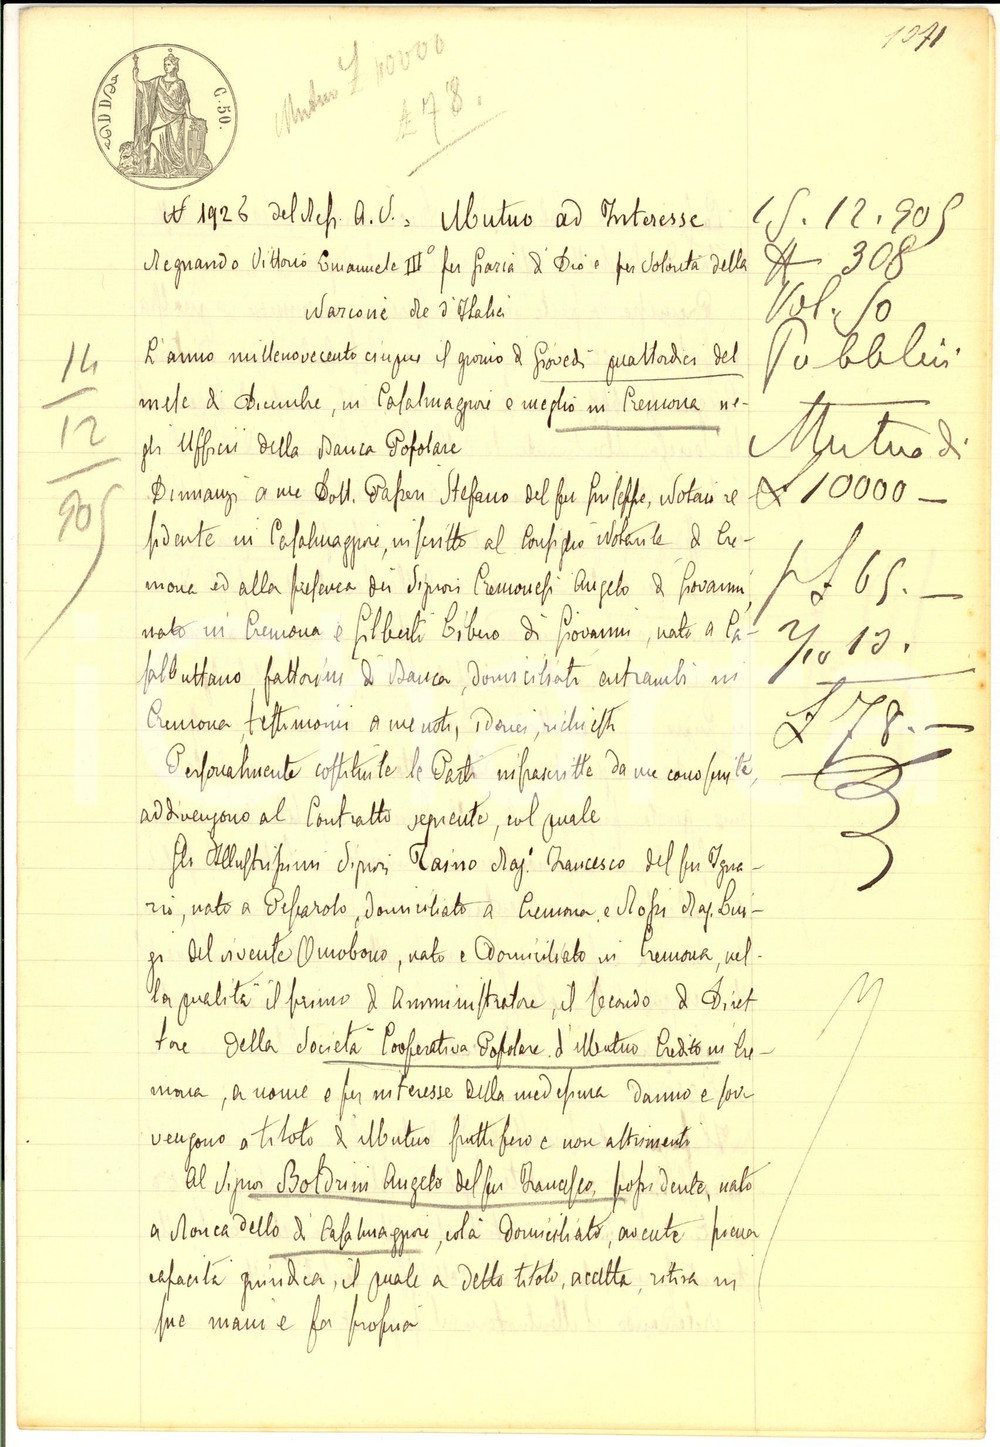 1071
C. 50.
Mutuo £ 10000
£ 78.
N 1926 del Rep. A. V. = Mutuo ad Interesse
Regnando Vittorio Emanuele III° per Grazia di Dio e per Volontà della
Nazione Re d'Italia
L'anno millenovecento cinque il giorno di Giovedì quattordici del
mese di Dicembre, in Casalmaggiore e meglio in Cremona ne-
gli Ufficii della Banca Popolare
Dinnanzi a me Dott. Stefano del fu Giuseppe, Notaio re
sidente in Casalmaggiore, inscritto al Consiglio Notarile di Cre-
mona ed alla presenza dei Signori Cremonesi Angelo di Giovanni,
nato in Cremona e Gilberti Libero di Giovanni, nato a Ca-
salbuttano, fattorini di Banca, domiciliati entrambi in
Cremona testimoni a me noti, idonei, richiesti
Personalmente costituite le Parti infrascritte da me conosciute,
addivengono al Contratto seguente, col quale
Gli Illustrissimi Signori Taino Rag. Francesco del fu Igna-
zio, nato a Pescarolo, domiciliato a Cremona e Rossi Rag. Lui-
gi del vivente Omobono, nato e domiciliato in Cremona, nel-
la qualità il primo di Amministratore, il secondo di Diret
tore della Società Cooperativa Popolare di Mutuo Credito in Cre-
mona, a nome e per interesse della medesima danno e sov-
vengono a titolo di Mutuo fruttifero e non altrimenti
Al Signor Boldrini Angelo del fu Francesco, possidente, nato
a Roncadello di Casalmaggiore, colà domiciliato, avente piena
capacità giuridica, il quale a detto titolo, accetta, ritira in
sue mani e fa propria
14
12
905
15. 12. 905
N 308
Vol. 50
Pubblici
Mutuo di
£ 10000 —
p £ 65. —
2/10 13.
£ 78. —